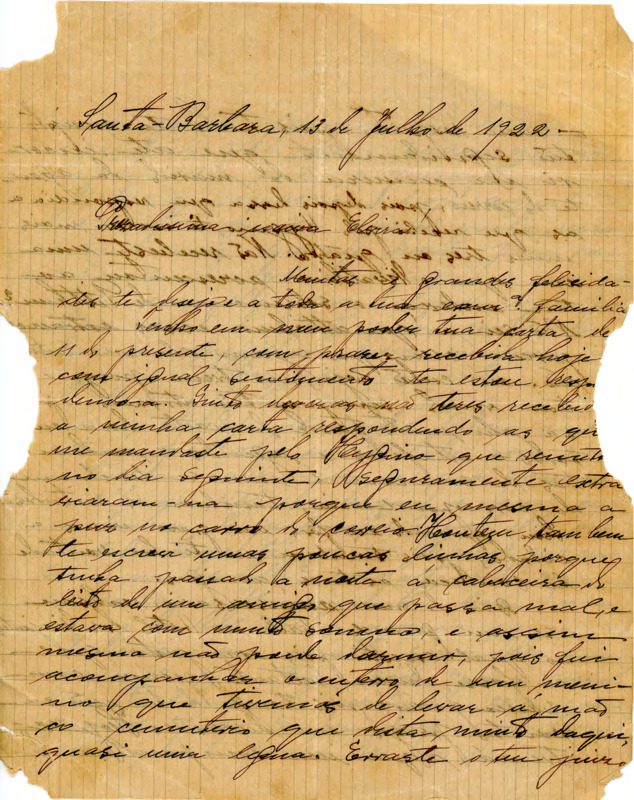 Santa-Barbara, 13 de Julho de 1922 -
Presadissima Elvira,
Muitas e grandes felicida-
des te desejo e a toda a tua exmª. familia
Tenho em meu poder tua carta de
11 do presente, com praser recebida hoje
com igual sentimento te estou respon
dendo-a. Sinto deveras não teres recebido
a minha carta respondendo as que
me mandaste pelo Hygino que remetti
no dia seguinte, seguramente extra
viaram-na porque eu mesma a
puz no carro do correio. Hontem tambem
te escrevi umas poucas linhas porque
tinha passado a noite a cabeceira do
leito de um amigo que passa mal, e
estava com muito somno, e assim
mesmo não poude dormir, pois fui
acompanhar o enterro de um meni-
no que tivemos de levar á mão
ao cemiterio que dista muito daqui,
quasi uma legua. Erraste o teu juizo